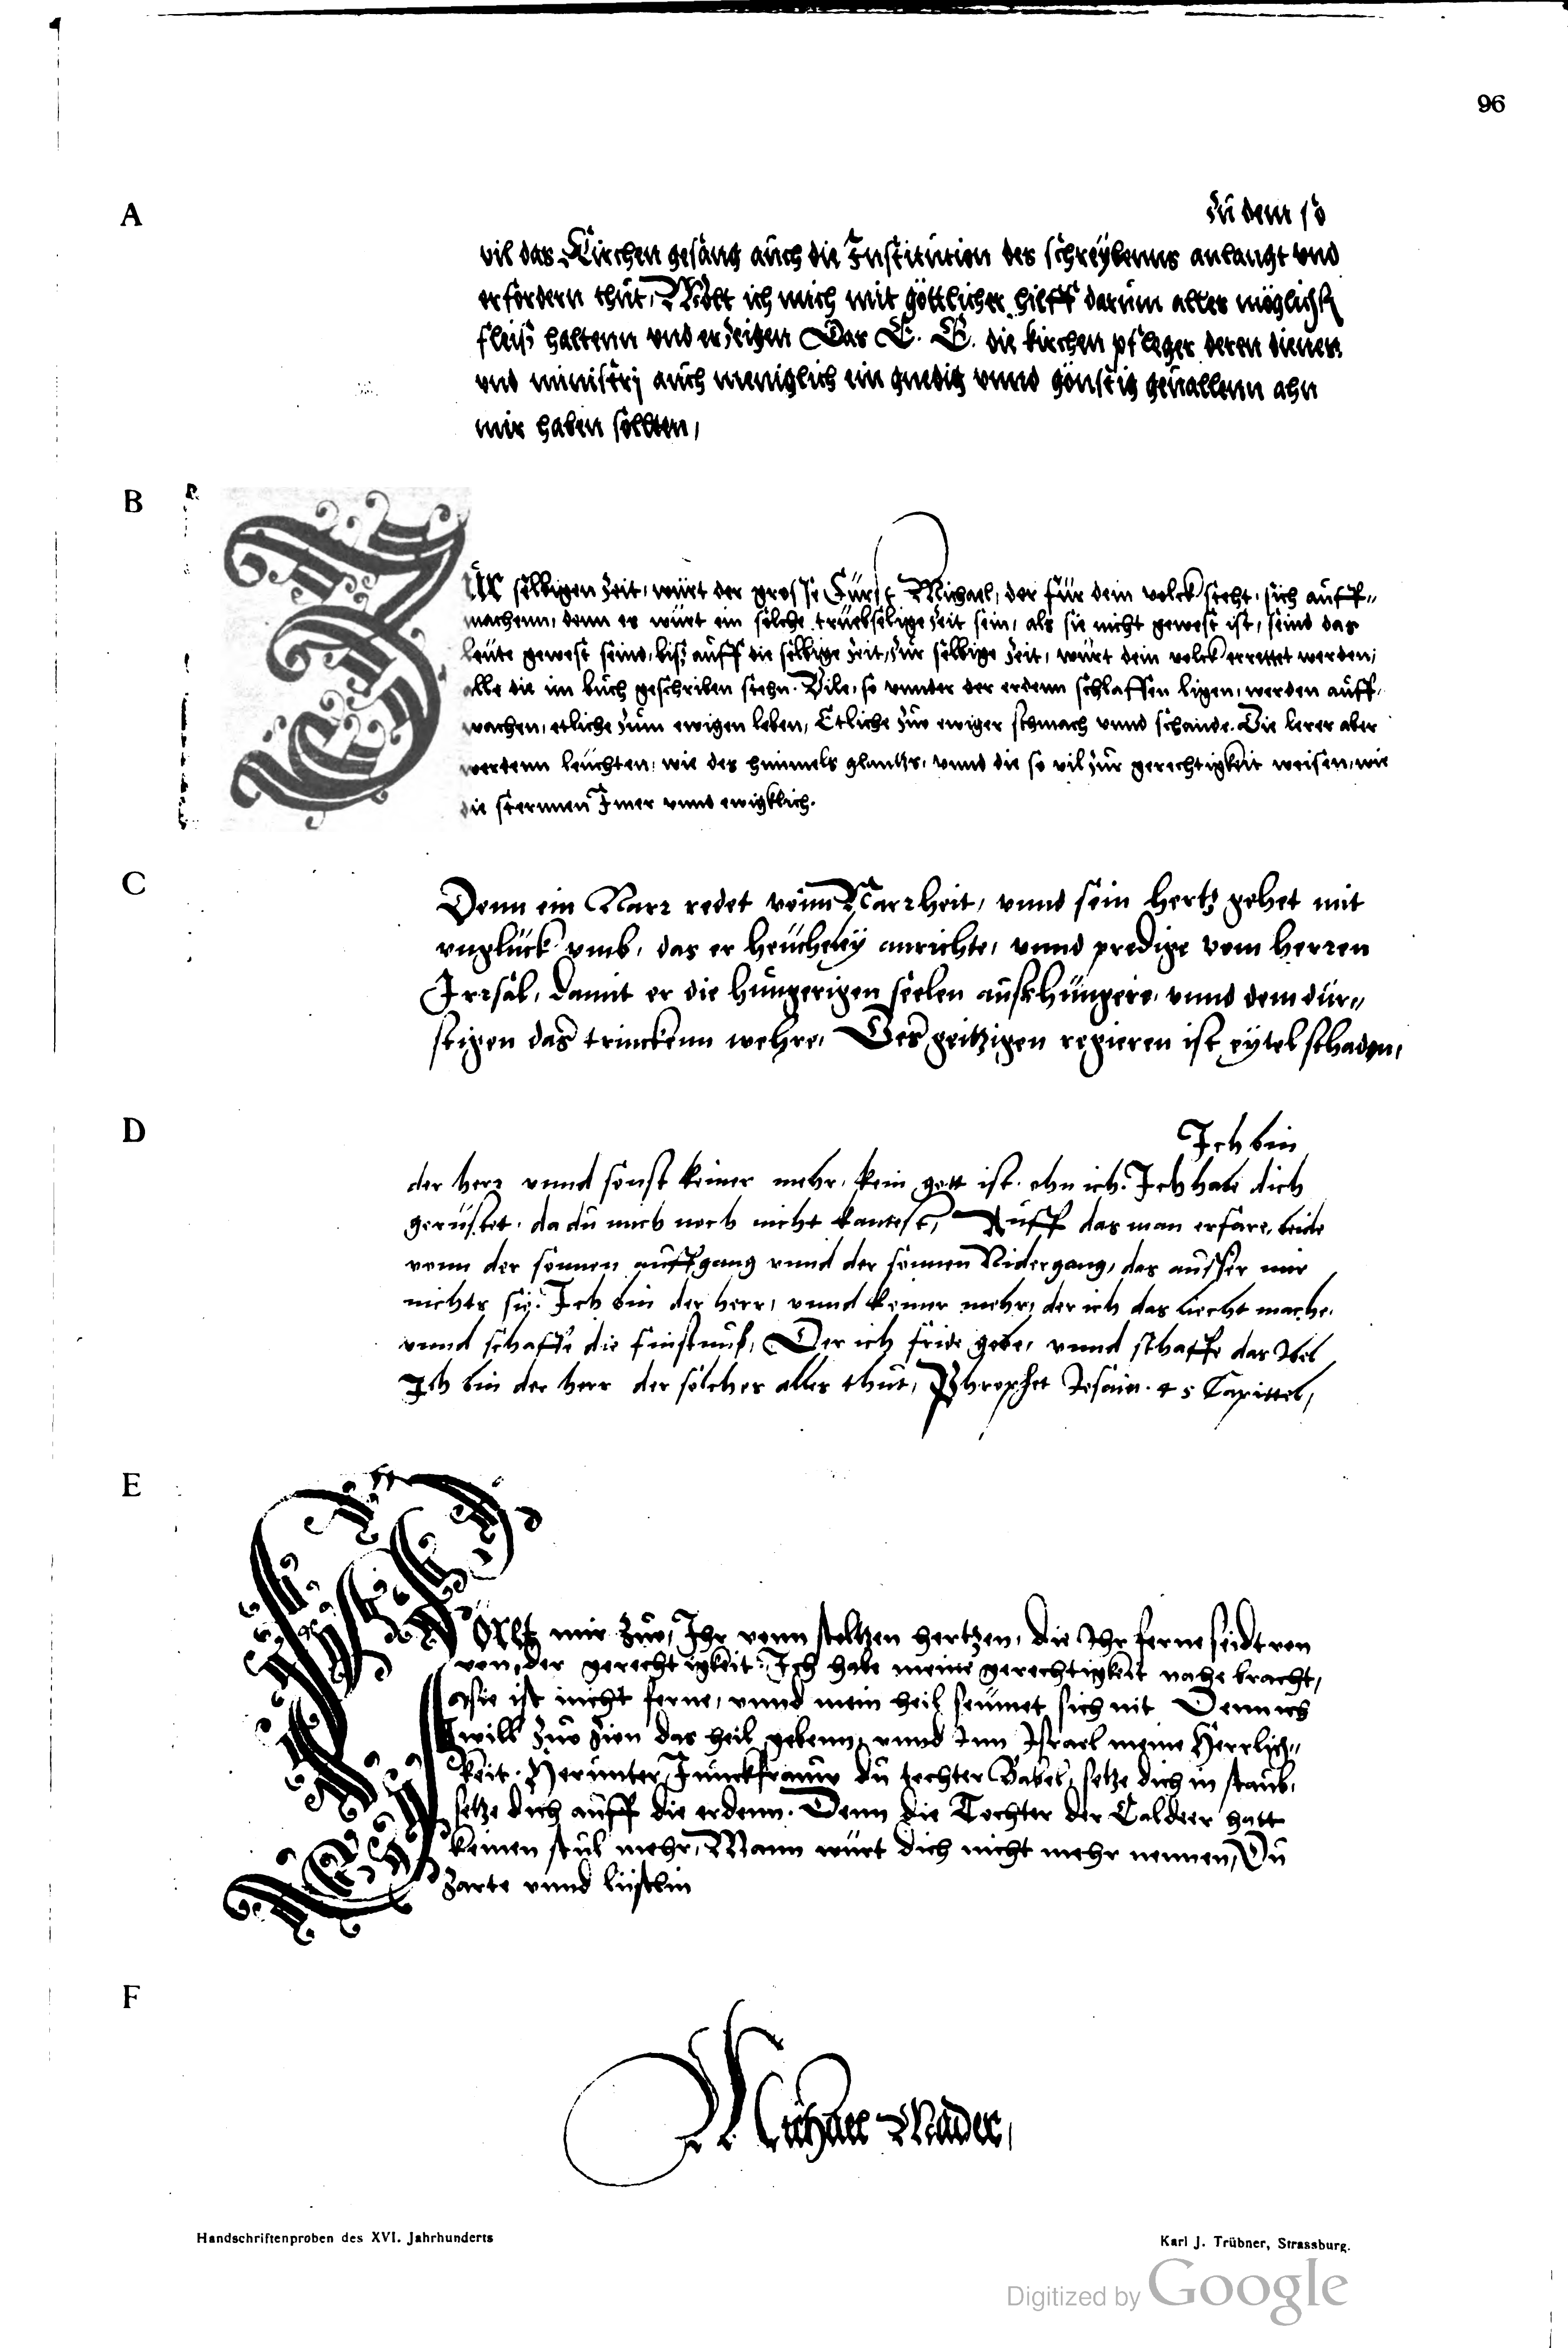 96
A
Zu dem so
vil das Kirchen gesang auch die Institution des schreybenns anlangt vnd
erfordern thut, Wolt ich mich mit göttlicher hilff darum alles möglichst
fleiß haltenn vnd erzeigen Das E. E. die kirchen pfleger deren diener
vnd ministrj auch meniglich ein gnedig vnnd gönstig geuallenn ahn
mir haben sollten,
B
ZUr selbigen Zeit, würt der grosse Fürst Michael, der für dein volck steht, sich auff„
machenn, denn es würt ein solche trüebselige Zeit sein, als sie nicht gewest ist, seind das
leüte gewest seind, biß auff die selbige Zeit, Zur selbige Zeit, würt dein volck errettet werden,
alle die im buch geschriben stehn. Vile, so vnnder der erdenn schlaffen ligen, werden auff„
wachen, etliche Zum ewigen leben, Etliche Zuo ewiger schmach vnnd schande. Die lerer aber
werdenn leuchten, wie des himmels glantz, vnnd die so vil Zur gerechtigkeit weisen, wie
die sternnen Imer vnnd ewigklich.
C
Denn ein Narr redet vonn Narrheit, vnnd sein hertz gehet mit
vnglück vmb, das er heüchelej anrichte, vnnd predige vom herren
Irrsal, damit er die hungerigen seelen außhüngere, vnnd dem dür„
stigen das trinckenn wehre, Des geitzigen regieren ist eytel schaden,
D
Ich bin
der herr vnnd sonst keiner mehr, kein gott ist, ohn ich. Ich habe dich
gerüstet, da du mich noch nicht kantest, Auff das man erfare, beide
vonn der sonnen auffgang vnnd der sonnen Nidergang, das ausser mir
nichts sie. Ich bin der herr, vnnd keiner mehr, der ich das liecht mache,
vnnd schaffe die finstnuß, Der ich fride gebe, vnnd schaffe das Ibel
Ich bin der herr der solches alles thut, Phrophet Jesaia. 45 Capittel,
E
HÖrtt mir Zuo, Ihr vonn stoltzen hertzen, die Ihr ferne seidt von
von, der gerechtigkeit. Ich habe meine gerechtigkeit nahe bracht,
sie ist nicht ferne, vnnd mein heil seümet sich nit Denn ich
will Zuo Zion das heil gebenn, vnnd Inn Israel meine Herrlich„
keit. Herunter Junckfrauw du tochter Babel, setze dich in staub,
setze dich auff die erdenn. Denn die Tochter der Caldeer hatt
keinen stul mehr, Mann würt dich nicht mehr nennen, Du
Zarte vnnd lüstlin
F
Michael Mader,
Handschriftenproben des XVI. Jahrhunderts
Karl J. Trübner, Strassburg.
Digitized by Google